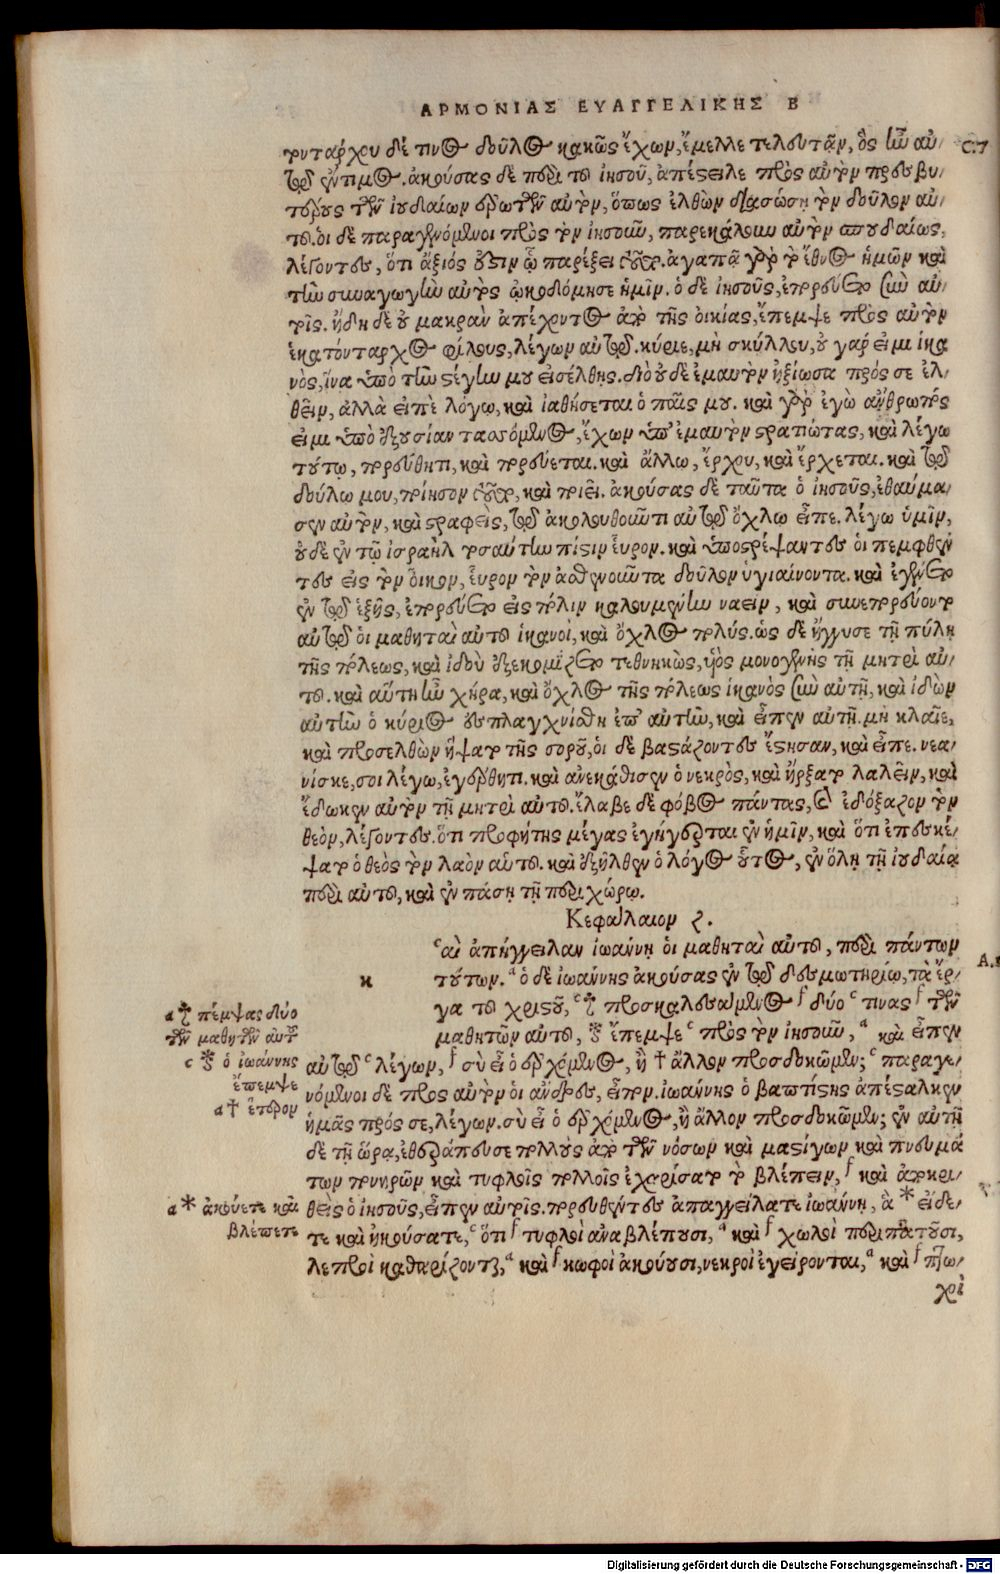 ΑΡΜΟΝΙΑΣ ΕΥΑΓΓΕΛΙΚΗΣ Β
τοντάρχου δέ τινος δοῦλος κακῶς ἔχων, ἔμελλε τελευτᾶν, ὃς ἦν αὐ
C.7
τῷ ἔντιμος. ἀκούσας δὲ περὶ τοῦ ἰησοῦ, ἀπέστειλε πρὸς αὐτὸν πρεσβυ
τέρους τῶν ἰουδαίων ἐρωτῶν αὐτὸν, ὅπως ἐλθὼν διασώσῃ τὸν δοῦλον αὐ
τοῦ. οἱ δὲ παραγενόμενοι πρὸς τὸν ἰησοῦν, παρεκάλουν αὐτὸν σπουδαίως,
λέγοντες, ὅτι ἄξιός ἐστιν ᾧ παρέξει τοῦτο. ἀγαπᾷ γὰρ τὸ ἔθνος ἡμῶν καὶ
τὴν συναγωγὴν αὐτὸς ᾠκοδόμησε ἡμῖν. ὁ δὲ ἰησοῦς, ἐπορεύετο σὺν αὐ
τοῖς. ἤδη δὲ οὐ μακρὰν ἀπέχοντος ἀπὸ τῆς οἰκίας, ἔπεμψε πρὸς αὐτὸν
ἑκατόνταρχος φίλους, λέγων αὐτῷ. κύριε, μὴ σκύλλου, οὐ γάρ εἰμι ἱκα
νὸς, ἵνα ὑπὸ τὴν στέγην μου εἰσέλθῃς. διὸ οὐδὲ ἐμαυτὸν ἠξίωσα πρός σε ἐλ
θεῖν, ἀλλὰ εἰπὲ λόγῳ, καὶ ἰαθήσεται ὁ παῖς μου. καὶ γὰρ ἐγὼ ἄνθρωπός
εἰμι ὑπὸ ἐξουσίαν τασσόμενος, ἔχων ὑπ' ἐμαυτὸν στρατιώτας, καὶ λέγω
τούτῳ, πορεύθητι, καὶ πορεύεται. καὶ ἄλλῳ, ἔρχου, καὶ ἔρχεται. καὶ τῷ
δούλῳ μου, ποίησον τοῦτο, καὶ ποιεῖ. ἀκούσας δὲ ταῦτα ὁ ἰησοῦς, ἐθαύμα
σεν αὐτὸν, καὶ στραφεὶς, τῷ ἀκολουθοῦντι αὐτῷ ὄχλῳ εἶπε. λέγω ὑμῖν,
οὐδὲ ἐν τῷ ἰσραὴλ τοσαύτην πίστιν εὗρον. καὶ ὑποστρέψαντες οἱ πεμφθέν
τες εἰς τὸν οἶκον, εὗρον τὸν ἀσθενοῦντα δοῦλον ὑγιαίνοντα. καὶ ἐγένετο
ἐν τῷ ἑξῆς, ἐπορεύετο εἰς πόλιν καλουμένην ναεὶν, καὶ συνεπορεύοντο
αὐτῷ οἱ μαθηταὶ αὐτοῦ ἱκανοὶ, καὶ ὄχλος πολύς. ὡς δὲ ἤγγισε τῇ πύλῃ
τῆς πόλεως, καὶ ἰδοὺ ἐξεκομίζετο τεθνηκὼς, υἱὸς μονογενὴς τῇ μητρὶ αὐ
τοῦ. καὶ αὕτη ἦν χήρα, καὶ ὄχλος τῆς πόλεως ἱκανὸς σὺν αὐτῇ, καὶ ἰδὼν
αὐτὴν ὁ κύριος ἐσπλαγχνίσθη ἐπ' αὐτὴν, καὶ εἶπεν αὐτῇ. μὴ κλαῖε,
καὶ προσελθὼν ἥψατο τῆς σοροῦ, οἱ δὲ βαστάζοντες ἔστησαν, καὶ εἶπε. νεα
νίσκε, σοι λέγω, ἐγέρθητι. καὶ ἀνεκάθισεν ὁ νεκρὸς, καὶ ἤρξατο λαλεῖν, καὶ
ἔδωκεν αὐτὸν τῇ μητρὶ αὐτοῦ. ἔλαβε δὲ φόβος πάντας, καὶ ἐδόξαζον τὸν
θεὸν, λέγοντες. ὅτι προφήτης μέγας ἐγήγερται ἐν ἡμῖν, καὶ ὅτι ἐπεσκέ
ψατο ὁ θεὸς τὸν λαὸν αὑτοῦ. καὶ ἐξῆλθεν ὁ λόγος οὗτος, ἐν ὅλῃ τῇ ἰουδαίᾳ
περὶ αὐτοῦ, καὶ ἐν πάσῃ τῇ περιχώρῳ.
Κεφάλαιον ζ.
c αὶ ἀπήγγειλαν ἰωάννῃ οἱ μαθηταὶ αὐτοῦ, περὶ πάντων
A.
κ τούτων. a ὁ δὲ ἰωάννης ἀκούσας ἐν τῷ δεσμωτηρίῳ, τὰ ἔρ
γα τοῦ χριστοῦ, c προσκαλεσάμενος f δύο c τινας f τῶν
μαθητῶν αὐτοῦ, ἔπεμψε c πρὸς τὸν ἰησοῦν, a καὶ εἶπεν
αὐτῷ c λέγων, f σὺ εἶ ὁ ἐρχόμενος, ἢ † ἄλλον προσδοκῶμεν; c παραγε
νόμενοι δὲ πρὸς αὐτὸν οἱ ἄνδρες, εἶπον. ἰωάννης ὁ βαπτιστὴς ἀπέσταλκεν
ἡμᾶς πρός σε, λέγων. σὺ εἶ ὁ ἐρχόμενος, ἢ ἄλλον προσδοκῶμεν; ἐν αὐτῇ
δὲ τῇ ὥρᾳ, ἐθεράπευσε πολλοὺς ἀπὸ τῶν νόσων καὶ μαστίγων καὶ πνευμά
των πονηρῶν καὶ τυφλοῖς πολλοῖς ἐχαρίσατο τὸ βλέπειν, f καὶ ἀποκρι
θεὶς ὁ ἰησοῦς, εἶπεν αὐτοῖς. πορευθέντες ἀπαγγείλατε ἰωάννῃ, ἃ * εἴδε
τε καὶ ἠκούσατε, c ὅτι f τυφλοὶ ἀναβλέπουσι, a καὶ f χωλοὶ περιπατοῦσι,
λεπροὶ καθαρίζονται, a καὶ f κωφοὶ ἀκούουσι, νεκροὶ ἐγείρονται, a καὶ f πτω
χοὶ
a πέμψας δύο
τῶν μαθητῶν αὐτοῦ
c ὁ ἰωάννης
ἔπεμψε
a † ἕτερον
a * ἀκούετε καὶ
βλέπετε
Digitalisierung gefördert durch die Deutsche Forschungsgemeinschaft - DFG